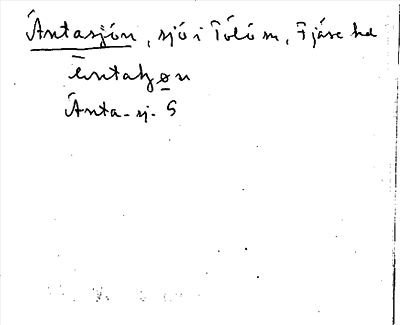 Ántasjön, sjö i Tölö sn, Fjäre hd
ēntahøn
Ánta-sj. S